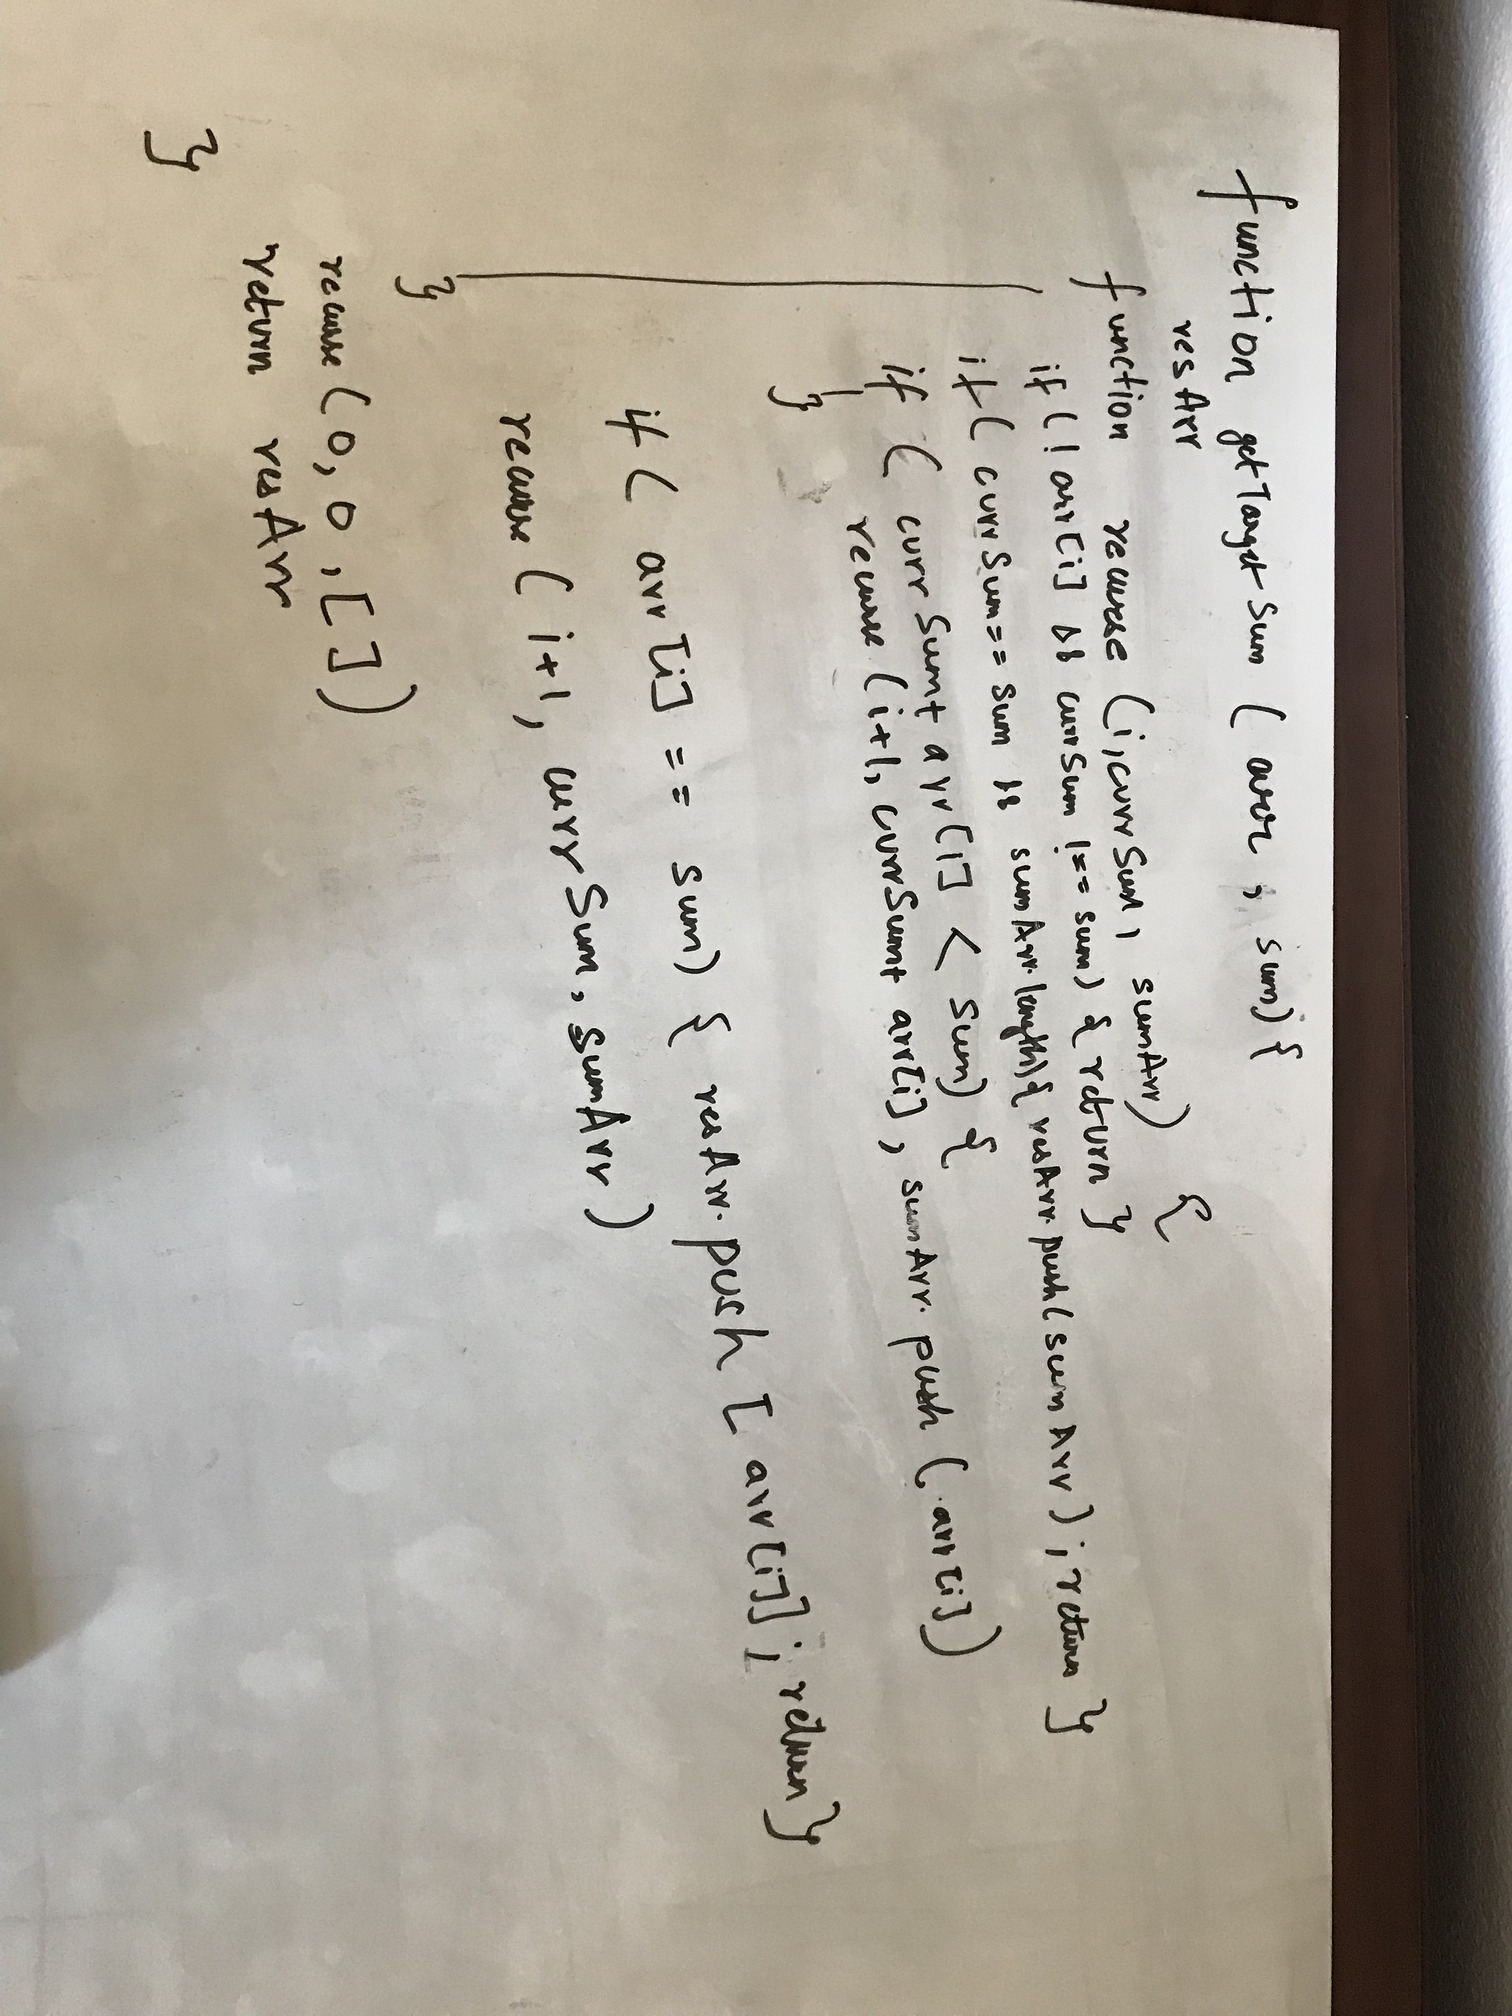 function getTargetSum ( arr , sum) {
resArr
function recurse (i, currSum, sumArr) {
if (! arr[i] && currSum !== sum) { return }
if ( currSum == sum && sumArr.length) { resArr.push( sumArr ) ; return }
if ( currSum + arr[i] < sum) {
recurse (i+1, currSum + arr[i] , sumArr.push (arr[i])
}
if ( arr[i] == sum) { resArr.push [ arr[i]] ; return }
recurse ( i+1, currSum, sumArr )
}
recurse (0, 0 , [ ])
return resArr
}